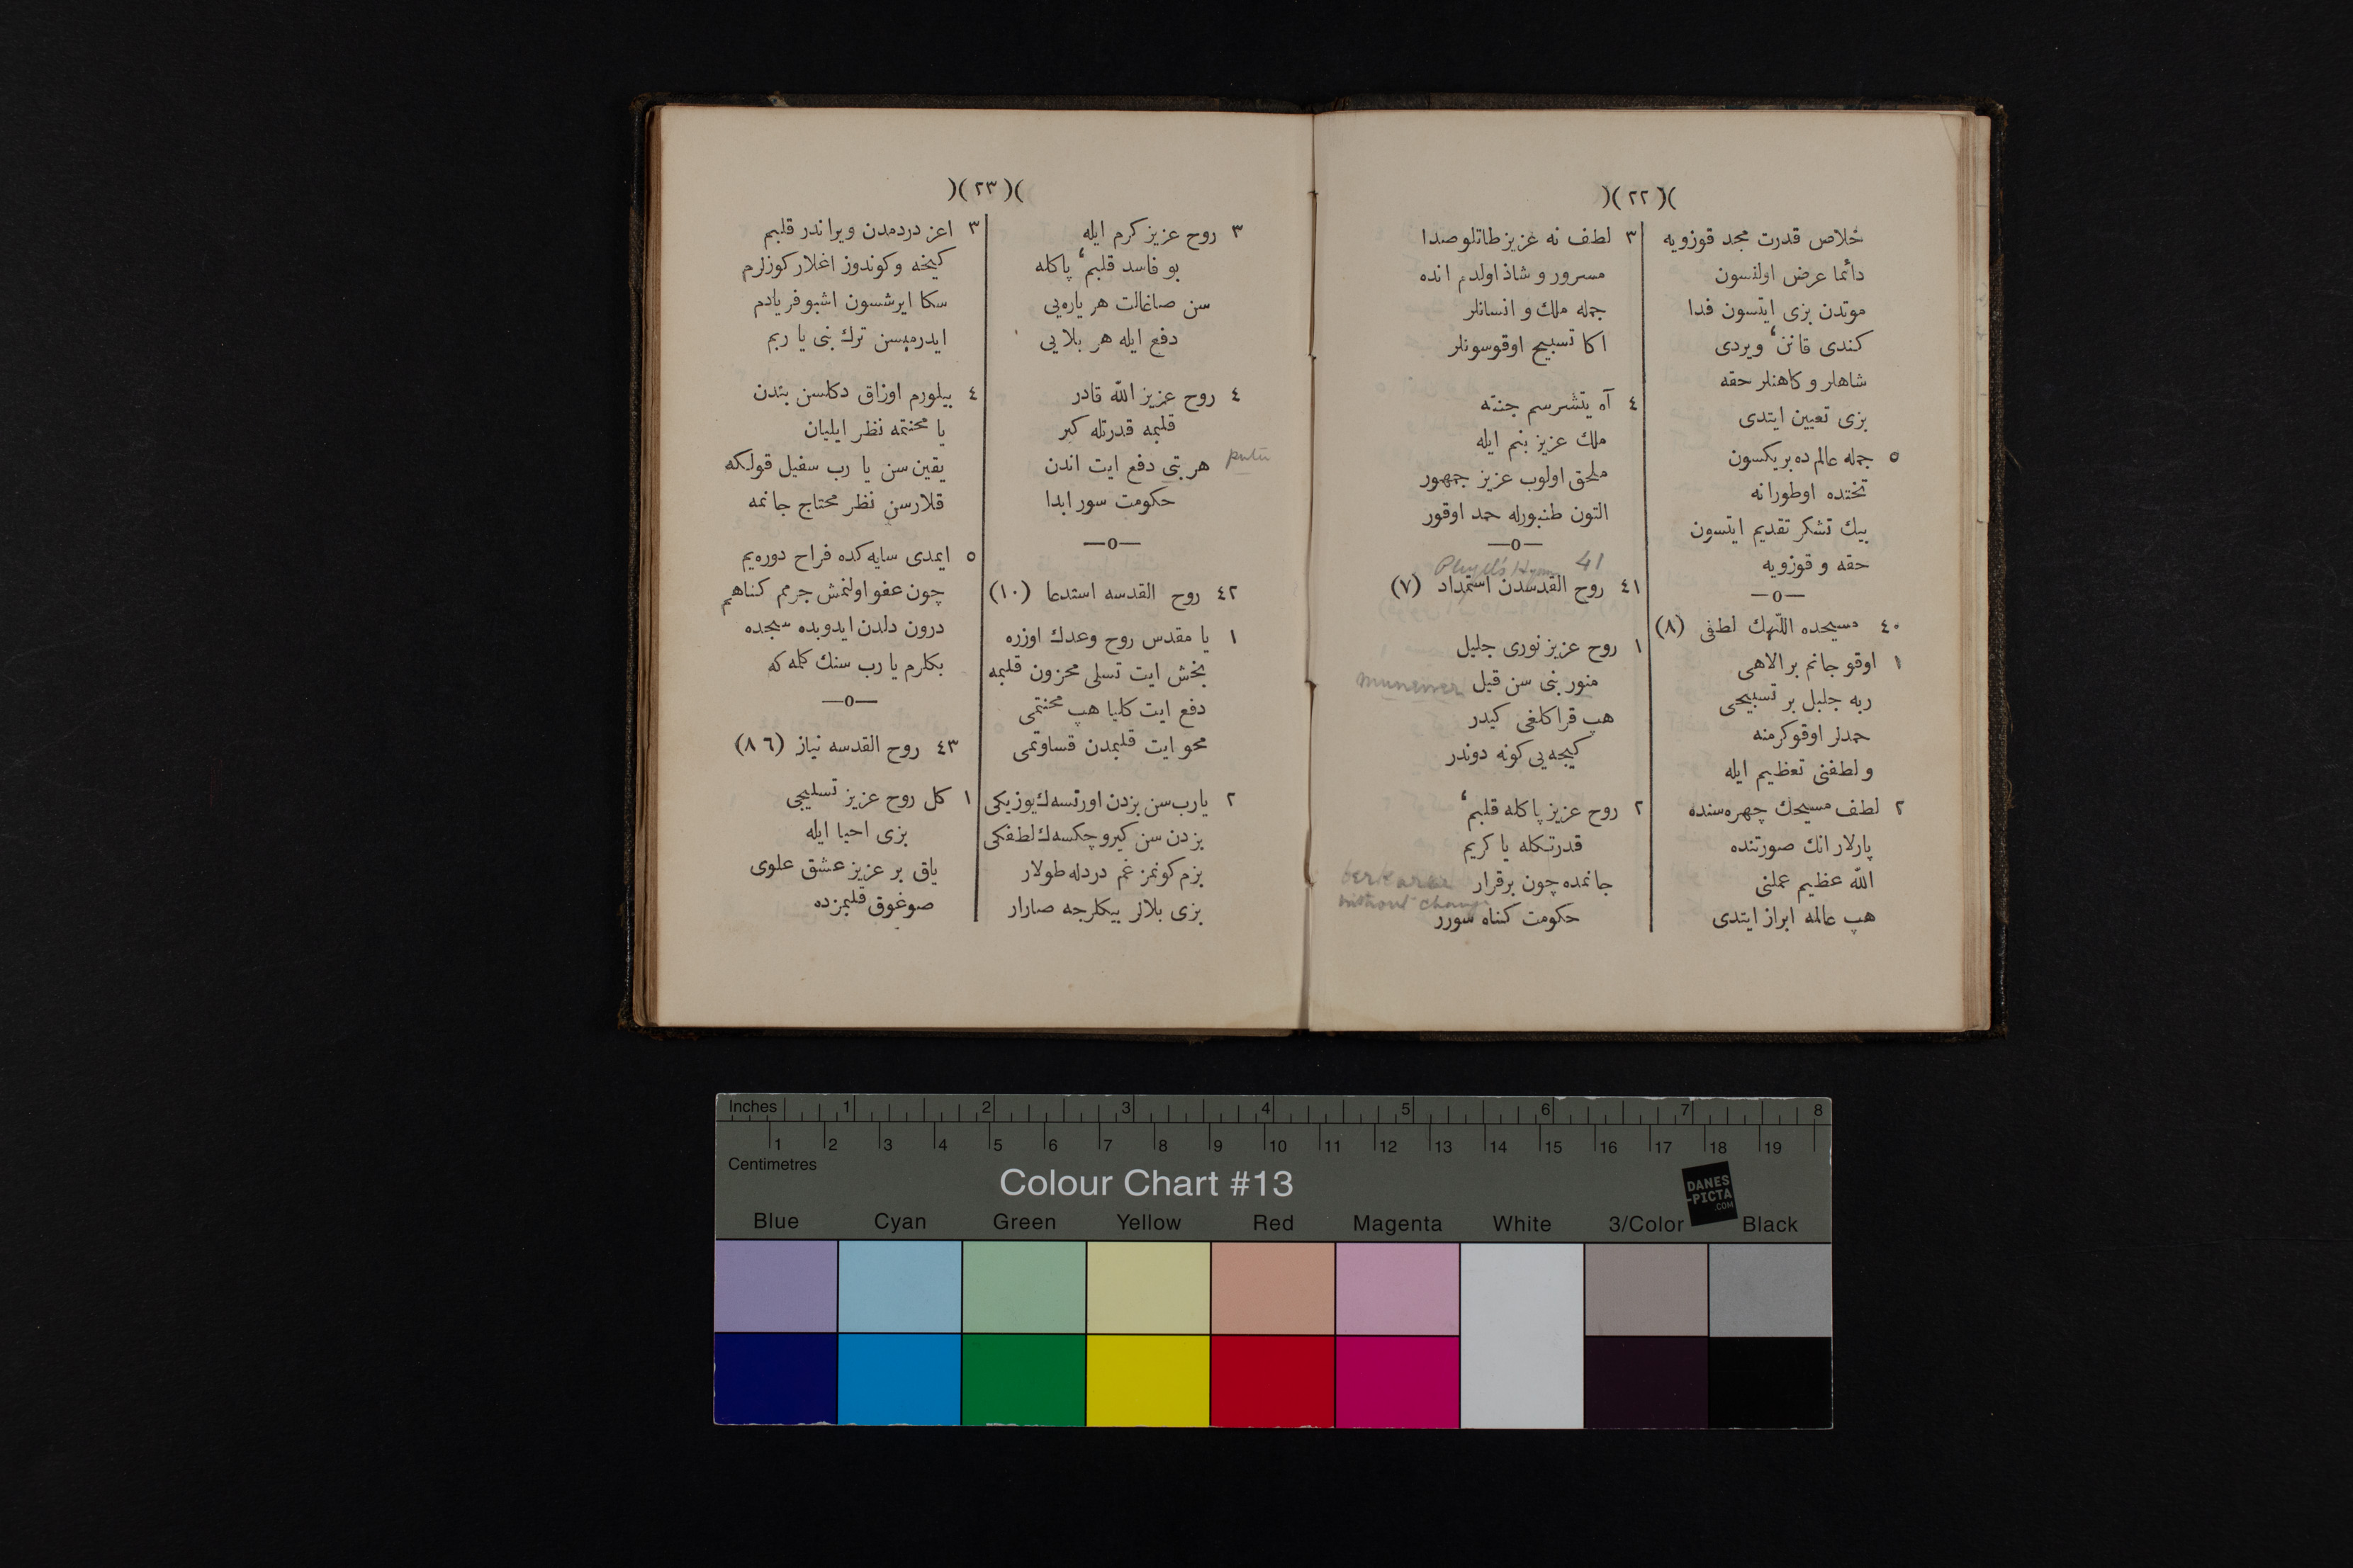 )( ٢٢ )(
خلاص قدرت مجد قوزويه
دائما عرض اولنسون
موتدن بزى ايتسون فدا
كندى قانن ويردى
شاهلر و كاهنلر حقه
بزى تعيين ايتدى
٥ جمله عالم ده بريكسون
تختده اوطورانه
بيك تشكر تقديم ايتسون
حقه و قوزويه
—o—
٤٠ مسيحده اللّٰهك لطفى (٨)
١ اوقو جانم بر الاهى
ربه جليل بر تسبيحى
حمدلر اوقو كرمنه
و لطفنى تعظيم ايله
٢ لطف مسيحك چهره‌سنده
پارلار انك صورتنده
اللّٰه عظيم عملنى
هپ عالمه ابراز ايتدى
٣ لطف نه عزيز طاتلو صدا
مسرور و شاذ اولدم انده
جمله ملك و انسانلر
اكا تسبيح اوقوسونلر
٤ آه يتشرسم جنته
ملك عزيز بنم ايله
ملحق اولوب عزيز جمهور
التون طنبورله حمد اوقور
—o—
41
٤١ روح القدسدن استمداد (٧)
١ روح عزيز نورى جليل
منور بنى سن قيل munevver
هپ قراكلغى كيدر
كيجه‌يى كونه دوندر
٢ روح عزيز پاكله قلبم
قدرتكله يا كريم
جانمده چون برقرار berkarar
without change
حكومت كناه سورر
)( ٢٣ )(
٣ روح عزيز كرم ايله
بو فاسد قلبم پاكله
سن صاغالت هر ياره‌يى
دفع ايله هر بلايى
٤ روح عزيز اللّٰه قادر
قلبمه قدرتله كير
هر بتى دفع ايت اندن putu
حكومت سور ابدا
—o—
٤٢ روح القدسه استدعا (١٠)
١ يا مقدس روح وعدك اوزره
بخش ايت تسلى محزون قلبمه
دفع ايت كليا هپ محنتمى
محو ايت قلبمدن قساوتمى
٢ يارب سن بزدن اورتسه‌ك يوزيكى
بزدن سن كيرو چكسه‌ك لطفكى
بزم كونمز غم دردله طولار
بزى بلالر بيكلرجه صارار
٣ اعز دردمدن ويراندر قلبم
كيجه و كوندوز اغلار كوزلرم
سكا ايرشسون اشبو فريادم
ايدرميسن ترك بنى يا ربم
٤ بيلورم اوزاق دكلسن بندن
يا محنتمه نظر ايليان
يقين سن يا رب سفيل قولكه
قلارسن نظر محتاج جانمه
٥ ايمدى سايه كده فراح دوره‌يم
چون عفو اولنمش جرمم كناهم
درون دلدن ايدوبده سجده
بكلرم يا رب سنك كلمه كه
—o—
٤٣ روح القدسه نياز (٨٦)
١ كل روح عزيز تسليجى
بزى احيا ايله
ياق بر عزيز عشق علوى
صوغوق قلبمزده
Inches 1 2 3 4 5 6 7 8
1 2 3 4 5 6 7 8 9 10 11 12 13 14 15 16 17 18 19
Centimetres
Colour Chart #13
DANES
-PICTA
.COM
Blue Cyan Green Yellow Red Magenta White 3/Color Black